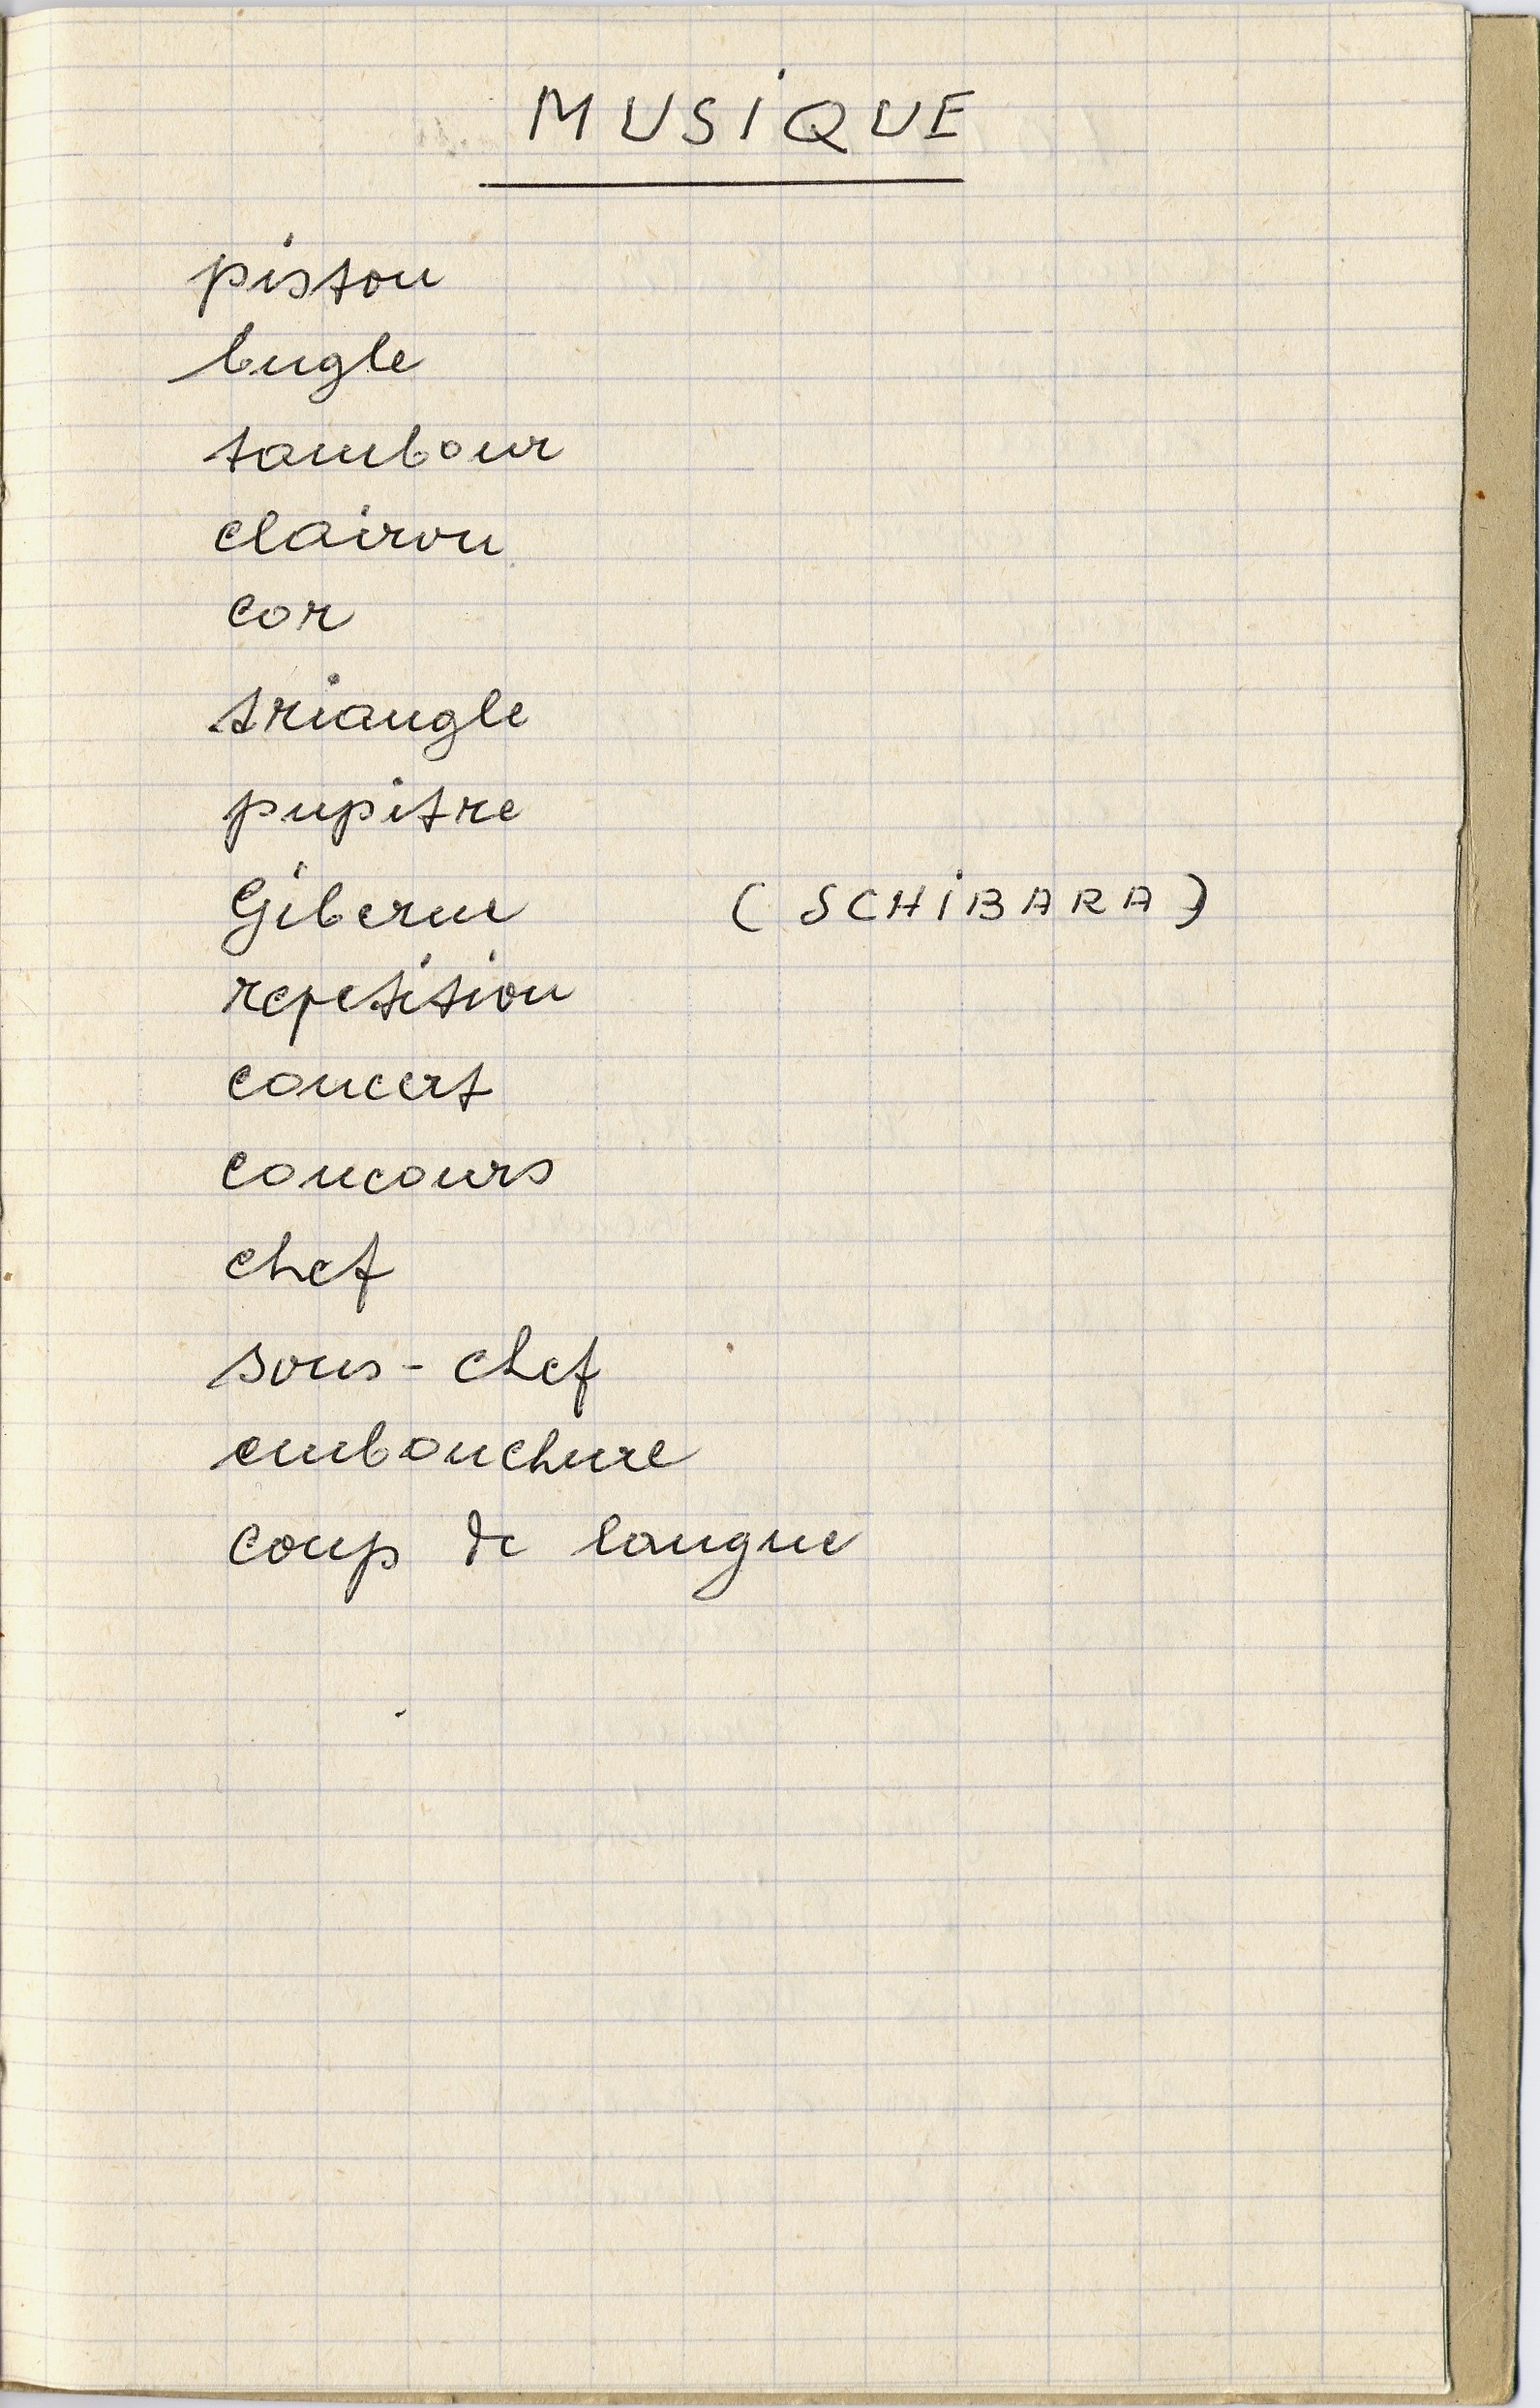 MUSIQUE
piston
bugle
tambour
clairon
cor
triangle
pupitre
Giberne (SCHIBARA)
repetition
concert
concours
chef
sous-chef
embouchure
coup de langue